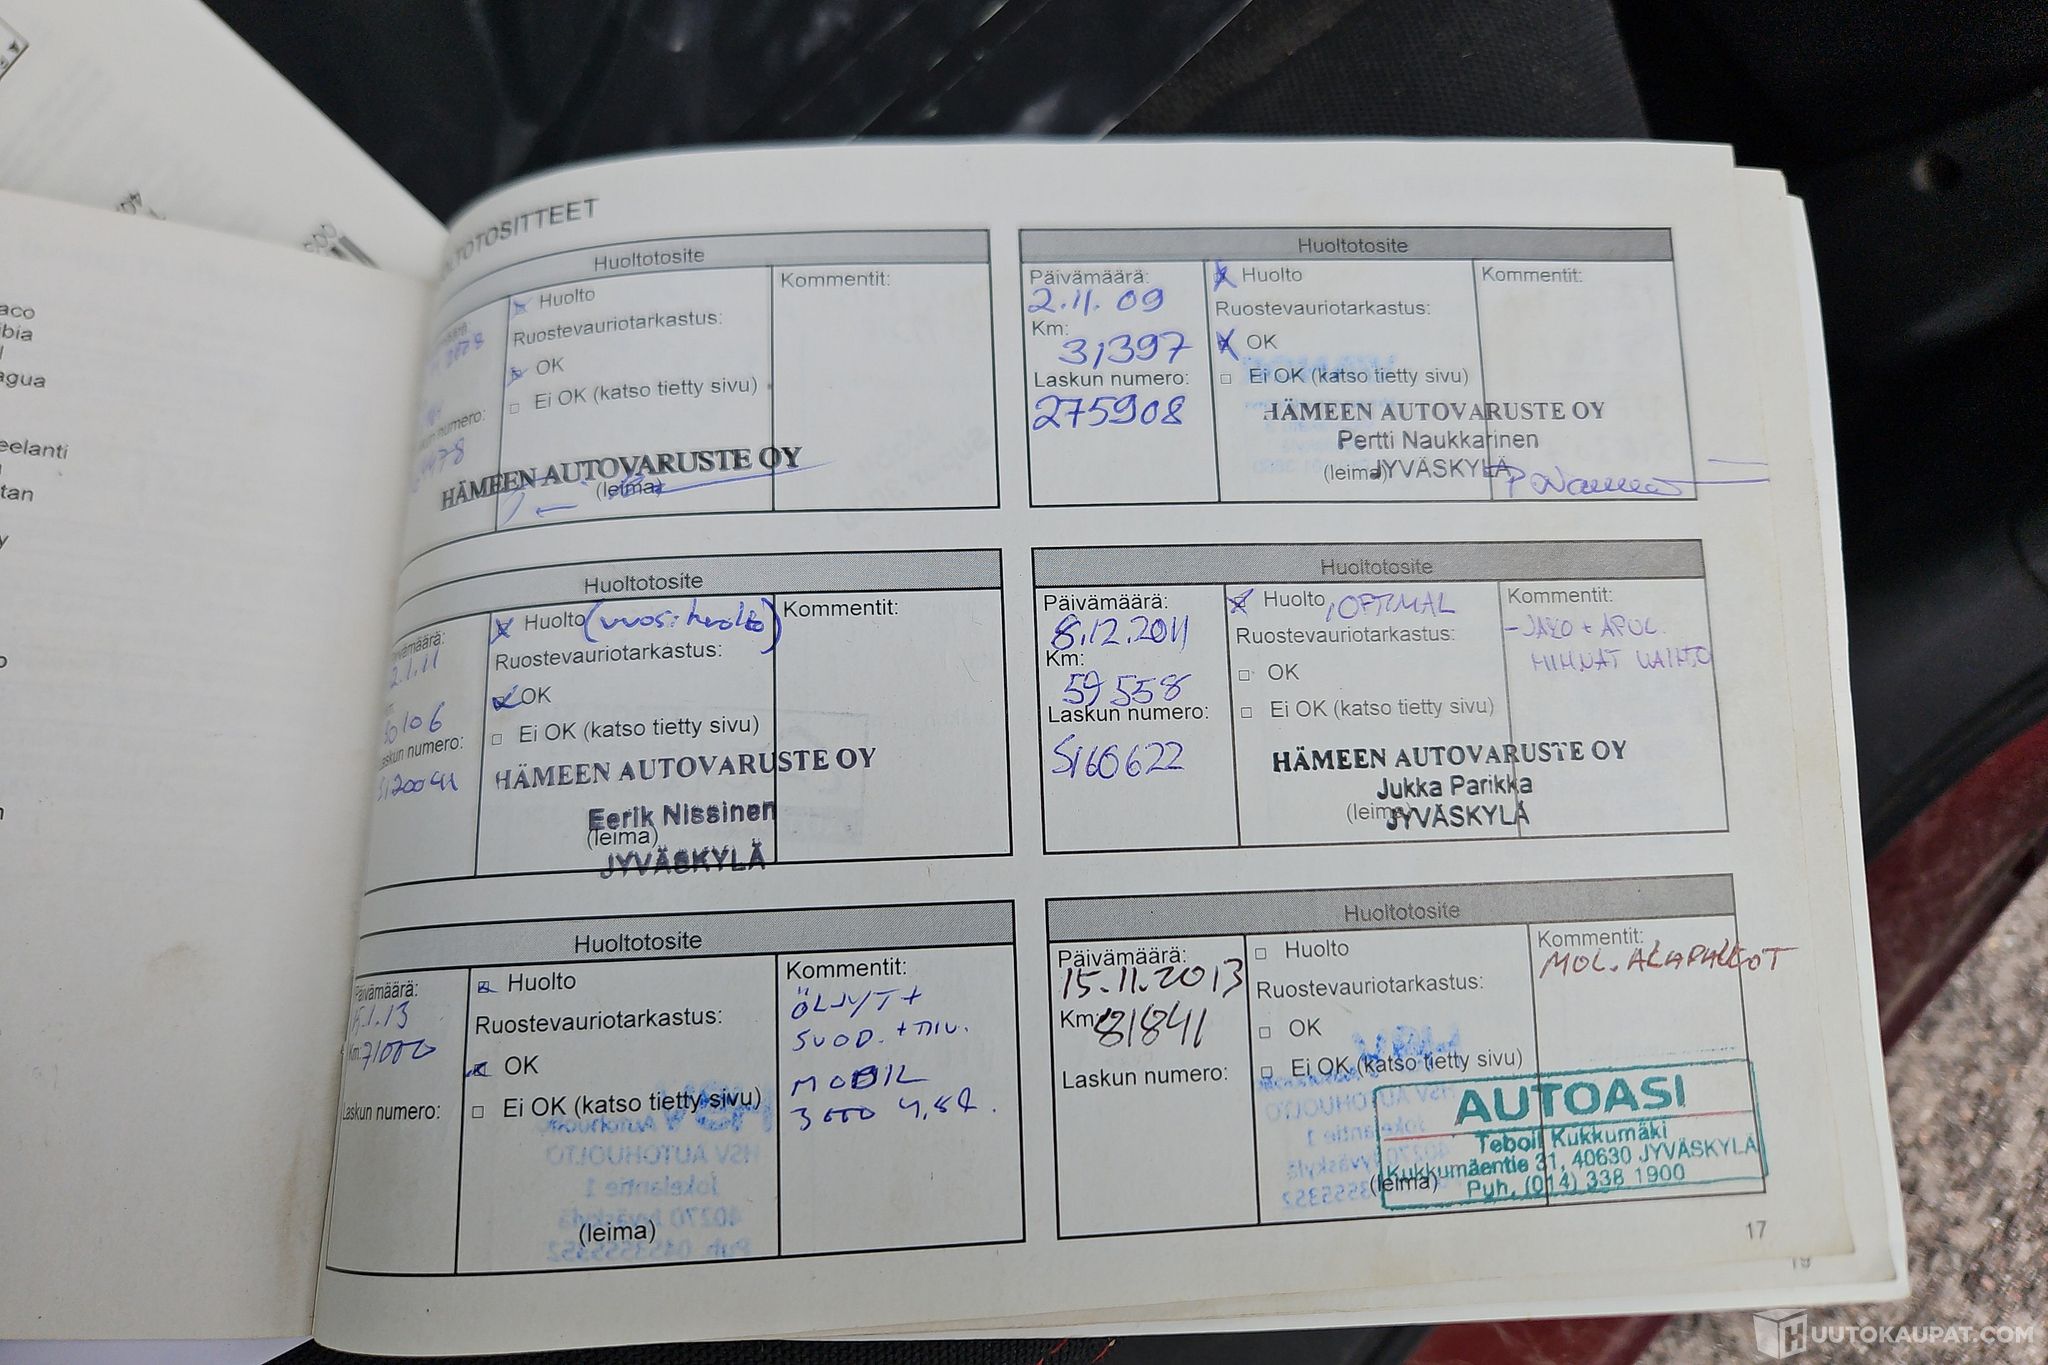 aco
ibia
agua
eelanti
tan
y
HUOLTOTOSITTEET
Huoltotosite
2008
numero:
Huolto
Ruostevauriotarkastus:
OK
Ei OK (katso tietty sivu)
HÄMEEN AUTOVARUSTE OY
(leima)
Kommentit:
Huoltotosite
Päivämäärä:
2.11.09
Km:
31397
Laskun numero:
275908
Huolto
Ruostevauriotarkastus:
OK
Ei OK (katso tietty sivu)
HÄMEEN AUTOVARUSTE OY
Pertti Naukkarinen
(leima) JYVÄSKYLÄ
Kommentit:
Huoltotosite
Päivämäärä:
2.1.11
50106
Laskun numero:
S120041
Huolto (vuosihuolto)
Ruostevauriotarkastus:
OK
Ei OK (katso tietty sivu)
HÄMEEN AUTOVARUSTE OY
Eerik Nissinen
(leima)
JYVÄSKYLÄ
Kommentit:
Huoltotosite
Päivämäärä:
8.12.2011
Km:
59558
Laskun numero:
S160622
Huolto, OPTIMAL
Ruostevauriotarkastus:
OK
Ei OK (katso tietty sivu)
HÄMEEN AUTOVARUSTE OY
Jukka Parikka
(leima) JYVÄSKYLÄ
Kommentit:
- JAKO + APUL.
HIHNAT VAIHTO
Huoltotosite
Päivämäärä:
15.1.13
Km: 71000
Laskun numero:
Huolto
Ruostevauriotarkastus:
OK
Ei OK (katso tietty sivu)
(leima)
Kommentit:
ÖLJYT +
SUOD. + TIIV.
MOBIL
3000 4,8L.
Huoltotosite
Päivämäärä:
15.11.2013
Km: 81841
Laskun numero:
Huolto
Ruostevauriotarkastus:
OK
Ei OK (katso tietty sivu)
(leima)
Kommentit:
MOL. ALAPALLOT
AUTOASI
Teboil Kukkumäki
Kukkumäentie 31, 40630 JYVÄSKYLÄ
Puh. (014) 338 1900
17
19
HUUTOKAUPAT.COM